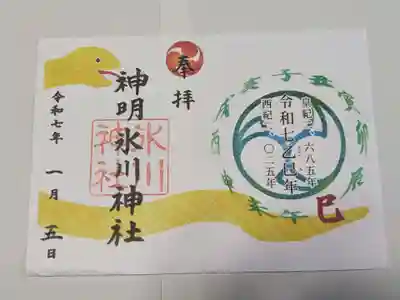 子丑寅卯辰巳午未申酉戌亥
皇紀二六八五年
令和七乙巳年
西紀二〇二五年
奉拝
神明氷川神社
氷川神社
令和七年一月五日